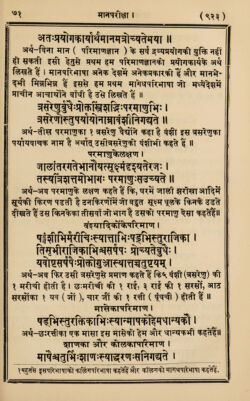 ७१
मानपरीक्षा ।
(९२३)
अतःप्रयोगकार्यार्थमानमत्रोच्यतेमया
अर्थ-विना मान ( परिमाणज्ञान ) के सर्व द्रव्यप्रयोगकी युक्ति नहीं
हो सकती इसी हेतुसे प्रथम हम परिमाणज्ञानको प्रयोगकार्यके अर्थ
लिखते हैं । मानपरिभाषा अनेक देशमें अनेकप्रकारकी हैं और मानभे-
दभी भिन्नभिन्न हैं इससे हम प्रथम मागधपरिभाषा जो मध्यदेशमें
प्राचीन आचार्योंने बांधी है उसे लिखते हैं ।
त्रसरेणुर्बुधैःप्रोक्तस्त्रिंशद्भिःपरमाणुभिः ।
त्रसरेणोस्तुपर्यायोनाम्नावंशीनिगद्यते ॥
अर्थ-तीस परमाणुका १ त्रसरेणु वैद्योंने कहा है वंशी इस त्रसरेणुका
पर्यायवाचक नाम है अर्थात् उसीत्रसरेणुको वंशीभी कहते हैं ।
परमाणुकेलक्षण
जालांतरगतेभानौयत्सूक्ष्मंदृश्यतेरजः ।
तस्यत्रिंशत्तमोभागः परमाणुःसउच्यते ॥
अर्थ-अब परमाणुके लक्षण कहते हैं कि, घरमें जाली झरोखा आदिमें
सूर्यकी किरण पडती है उनकिरणोंमें जो बहुत सूक्ष्म धूलके किनके उडते
दीखते हैं उस किनकेका तीसवाँ जो भाग है उसको परमाणु ऐसा कहतेहैं॥
वंश्यादिकेकापरिमाण.
षड्वंशीभिर्मरीचिःस्यात्ताभिःषड्भिस्तुराजिका ।
तिसृभीराजिकाभिश्चसर्षपः प्रोच्यतेबुधैः ।
यवोष्टसर्षपैःप्रोक्तोगुंजास्यात्तच्चतुष्टयम् ।
अर्थ-अब फिर उसी त्रसरेणुसे प्रमाण कहते हैं कि६ वंशी (त्रसरेणु) की
१ मरीची होती है । छः मरीचीकी १ राई, ३ राई की १ सरसों, आठ
सरसोंका १ यव (जौ ), चार जौ की १ रत्ती (घूंघची) होती है ॥
मासेकापरिमाण
षड्भिस्तुरक्तिकाभिःस्यान्माषकोहेमधान्यकौ ।
अर्थ-छःरत्तीका एक मासा इस मासेको हेम और धान्यकभी कहतेहैं॥
शाणका और कोलकापरिमाण
माषैश्चतुर्भिःशाणःस्याद्धरणःसनिगद्यते ।